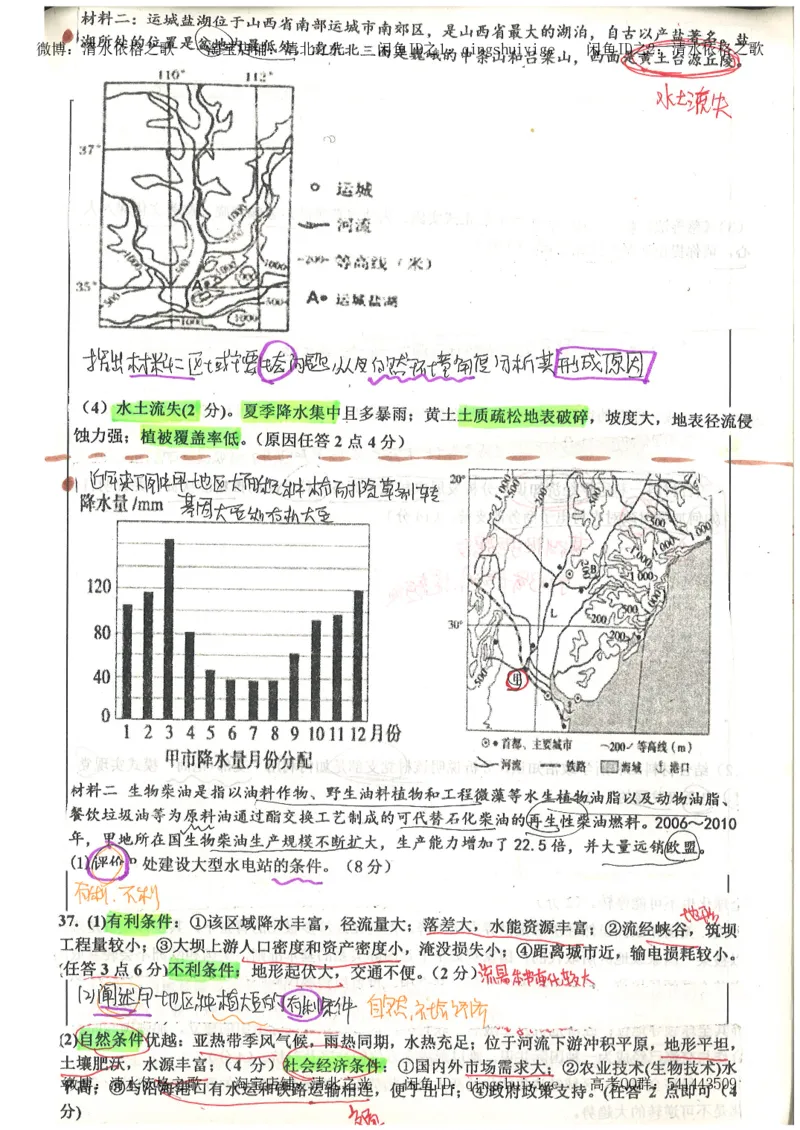 材料二：运城盐湖位于山西省南部运城市南郊区，是山西省最大的湖泊，自古以产盐著名。盐
湖所处的位置是盆地的最低处，北东北三面是巍峨的中条山和吕梁山，西面是黄土台源丘陵。
微博：清水依格之歌 淘宝店铺：清北之光 闲鱼ID之1：qingshuiyige 闲鱼ID之2：清水依格之歌
水土流失
110° 112°
37°
35°
1000
500
1000
500
1000
1000
500
500
1000
1000
A
运城
河流
-200- 等高线（米）
A 运城盐湖
指出材料二区域主要生态问题，从自然环境角度分析其形成原因
（4）水土流失(2 分)。夏季降水集中且多暴雨；黄土土质疏松地表破碎，坡度大，地表径流侵
蚀力强；植被覆盖率低。（原因任答 2 点 4 分）
1 近年来下图中甲地区大面积种植有机
基因大豆
降水量/mm
120
80
40
0
1 2 3 4 5 6 7 8 9 10 11 12 月份
甲市降水量月份分配
20°
30°
1000
500
200
500
1000
1000
1000
500
200
200
500
B
L
甲
⊙• 首都、主要城市 ~200~ 等高线（m）
河流 铁路 海域 港口
材料二 生物柴油是指以油料作物、野生油料植物和工程微藻等水生植物油脂以及动物油脂、
餐饮垃圾油等为原料油通过酯交换工艺制成的可代替石化柴油的再生性柴油燃料。2006～2010
年，甲地所在国生物柴油生产规模不断扩大，生产能力增加了 22.5 倍，并大量远销欧盟。
(1)评价P 处建设大型水电站的条件。（8 分）
有利、不利
37. (1)有利条件：①该区域降水丰富，径流量大；落差大，水能资源丰富；②流经峡谷，筑坝
地形
工程量较小；③大坝上游人口密度和资产密度小，淹没损失小；④距离城市近，输电损耗较小。
(任答 3 点 6 分)不利条件：地形起伏大，交通不便。（2 分）流量季节变化较大
(2)阐述甲地区种植大豆的有利条件 自然,社会经济
(2)自然条件优越：亚热带季风气候，雨热同期，水热充足；位于河流下游冲积平原，地形平坦，
土壤肥沃，水源丰富；（4 分）社会经济条件：①国内外市场需求大；②农业技术(生物技术)水
平高；③与沿海港口有水运和铁路运输相连，便于出口；④政府政策支持。(任答 2 点即可（4
微博：清水依格之歌 淘宝店铺：清北之光 闲鱼ID：qingshuiyige 高考QQ群：541443509
分)
交通